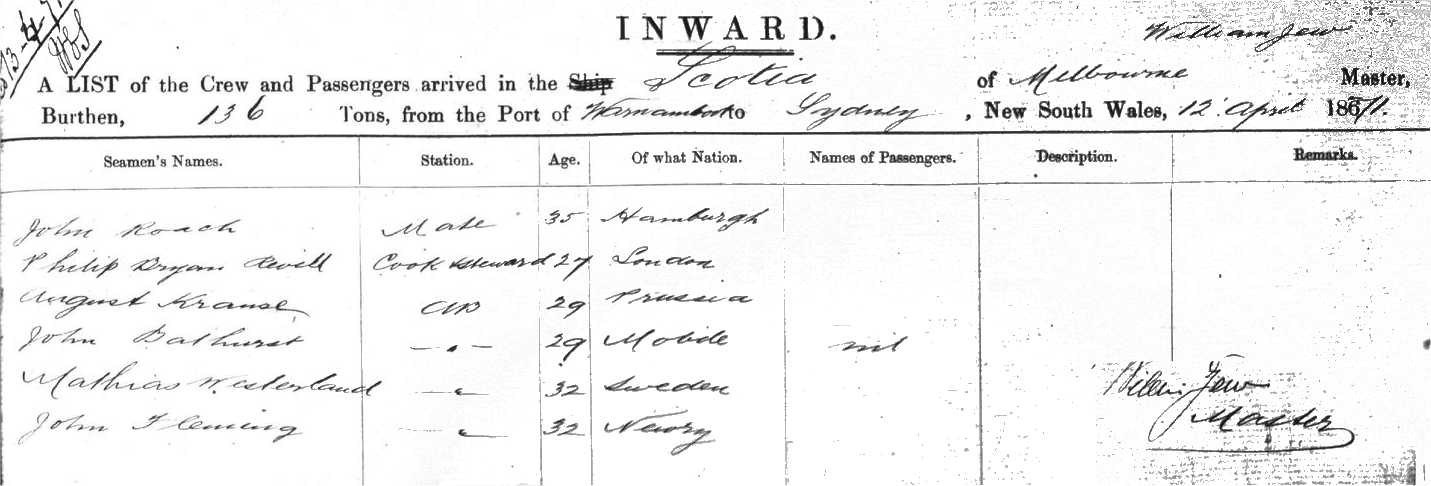 INWARD.
William Jew
A LIST of the Crew and Passengers arrived in the Ship Scotia of Melbourne Master,
Burthen, 136 Tons, from the Port of Warnambool to Sydney, New South Wales, 12 April 1871.
Seamen's Names. Station. Age. Of what Nation. Names of Passengers. Description. Remarks.
John Roach Mate 35 Hamburgh
Philip Bryan Revill Cook & Steward 27 London
August Krause AB 29 Prussia
John Bathurst — „ — 29 Mobile nil
Mathias Westerland — „ 32 Sweden
John Fleming — „ 32 Newry
Jew
Master